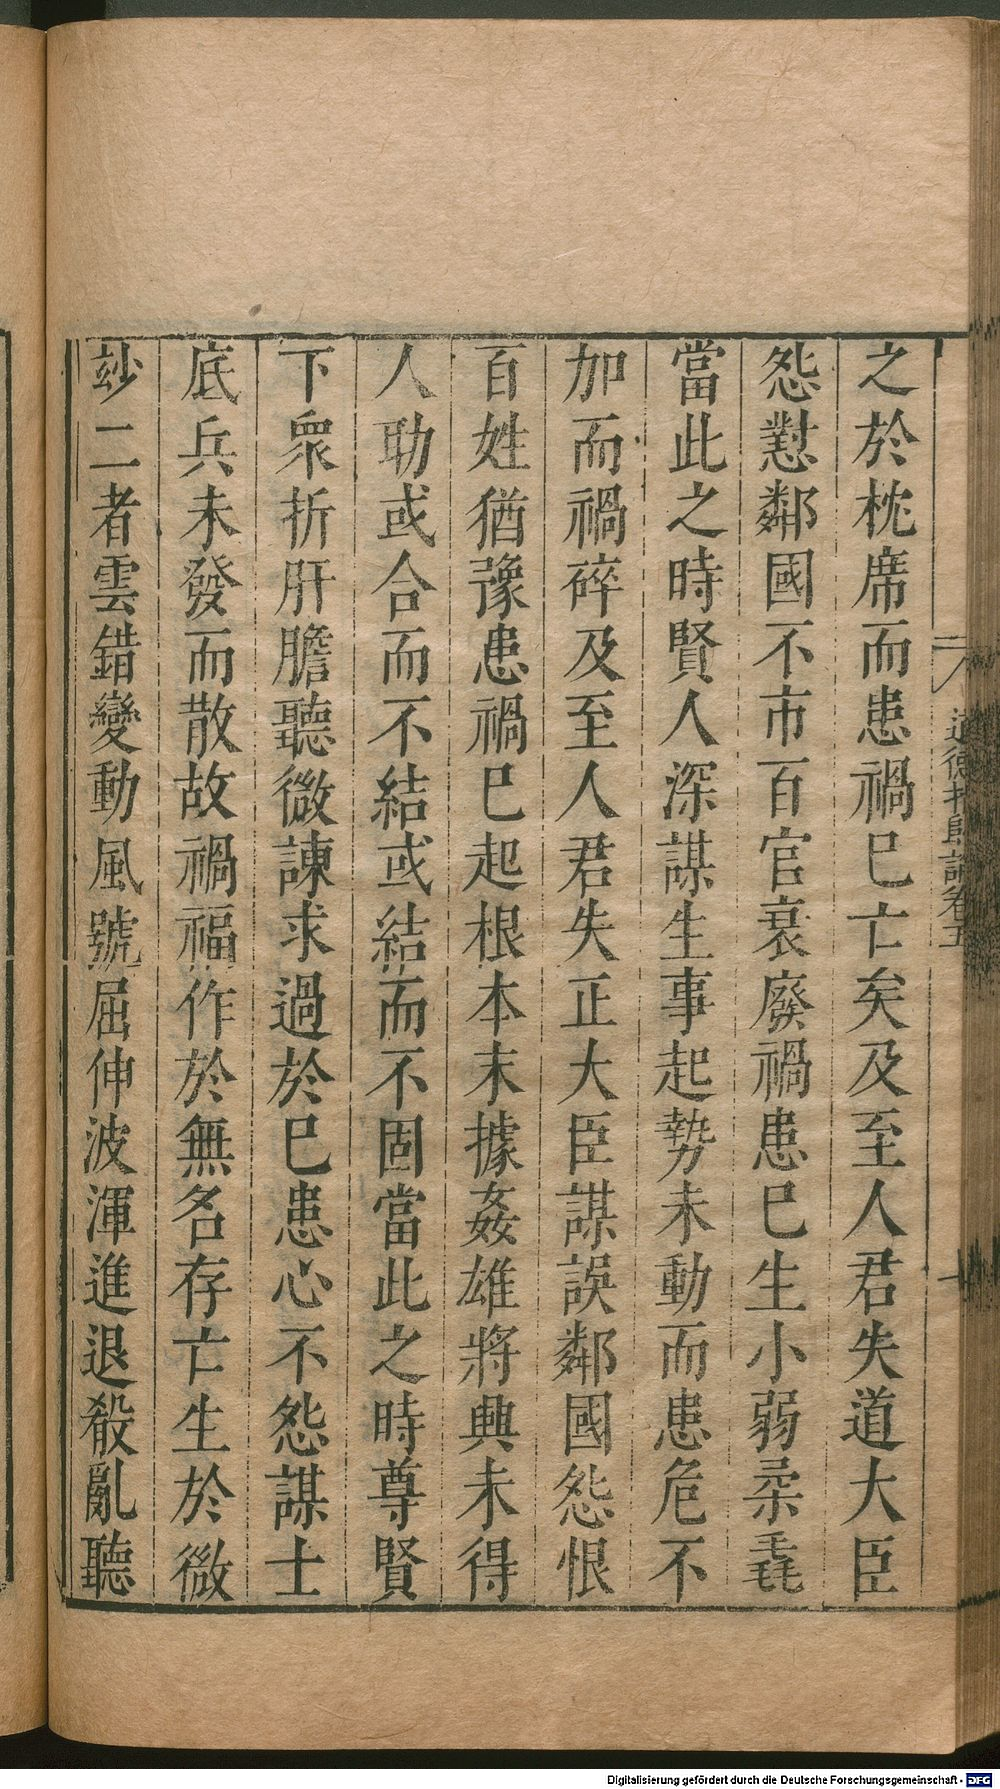 道德指歸論卷五
之於枕席而患禍巳亡矣及至人君失道大臣
怨懟鄰國不市百官衰廢禍患巳生小弱柔毳
當此之時賢人深謀生事起勢未動而患危不
加而禍碎及至人君失正大臣謀誤鄰國怨恨
百姓猶豫患禍巳起根本末據姦雄將興未得
人助或合而不結或結而不固當此之時尊賢
下衆折肝膽聽微諫求過於巳患心不怨謀士
底兵未發而散故禍福作於無名存亡生於微
玅二者雲錯變動風號屈伸波渾進退殽亂聽
Digitalisierung gefördert durch die Deutsche Forschungsgemeinschaft - DFG